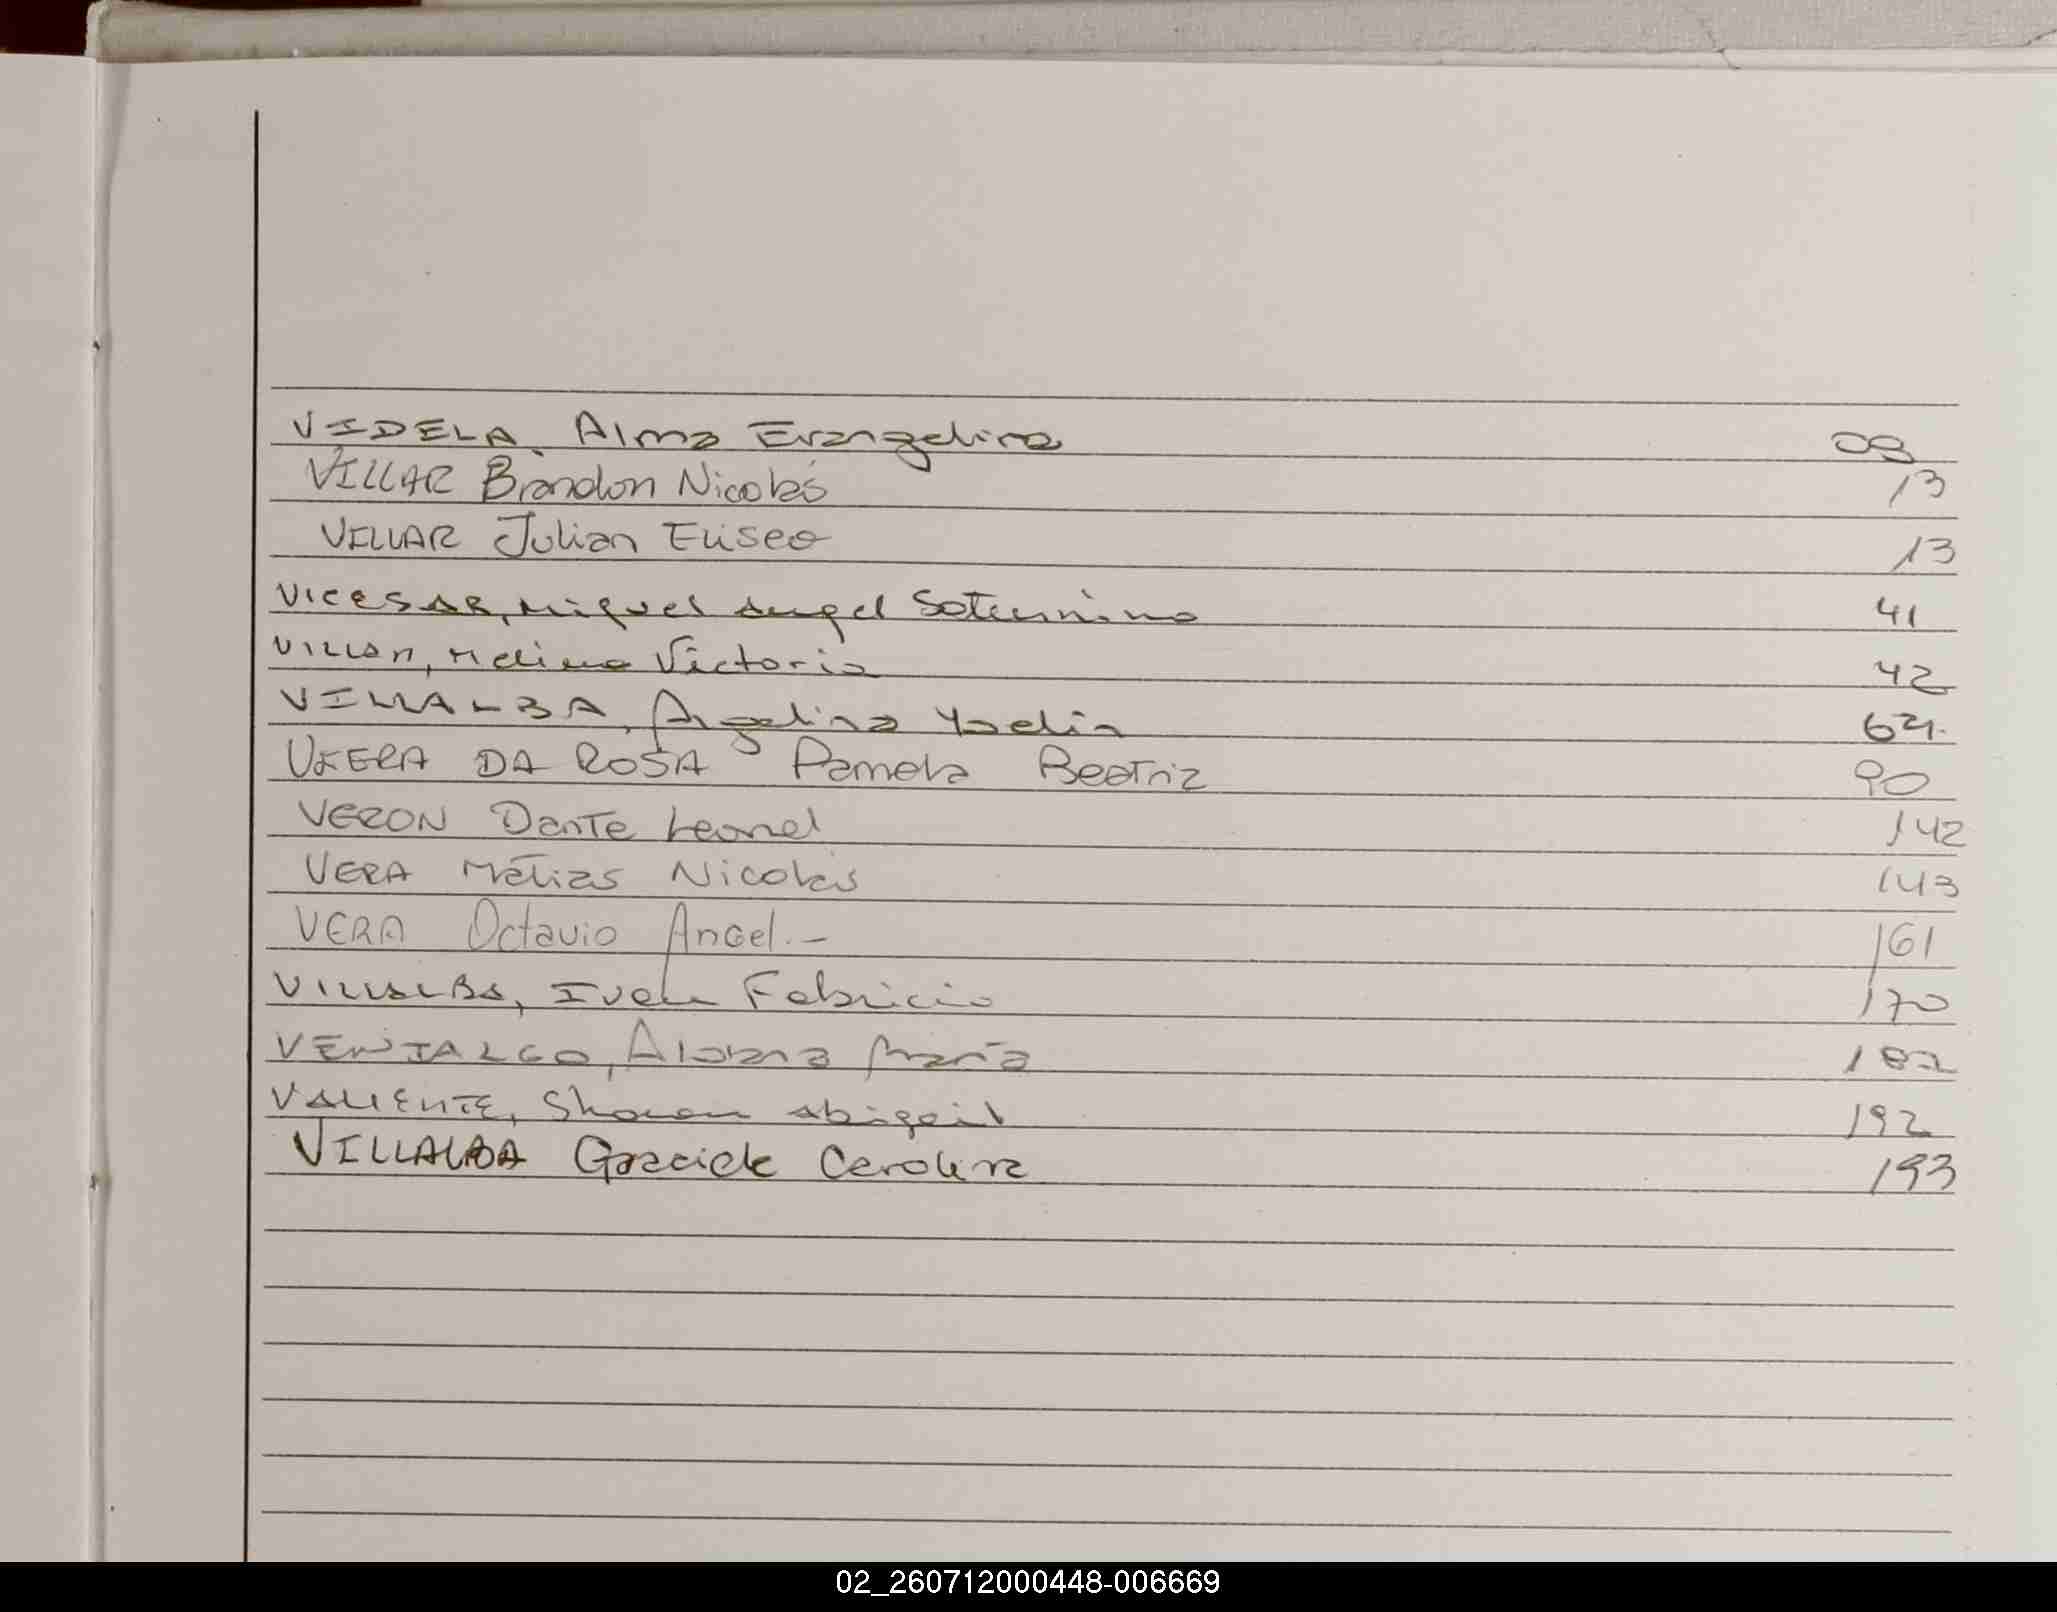 VIDELA, Alma Evangelina 09
VILLAR Brandon Nicolás 13
VILLAR Julian Eliseo 13
VICESAR, Miguel Angel Saturnino 41
Melina Victoria 42
VILLALBA, Angelina Yaelin 64.
VIERA DA ROSA Pamela Beatriz 90
VERON Dante Leonel 142
VERA Matías Nicolás 143
VERA Octavio Angel.- 161
VILLALBA, Ivan Fabricio 170
Aldana María 182
VALIENTE, Sharon Abigail 192
VILLALBA Graciela Carolina 193
02_260712000448-006669